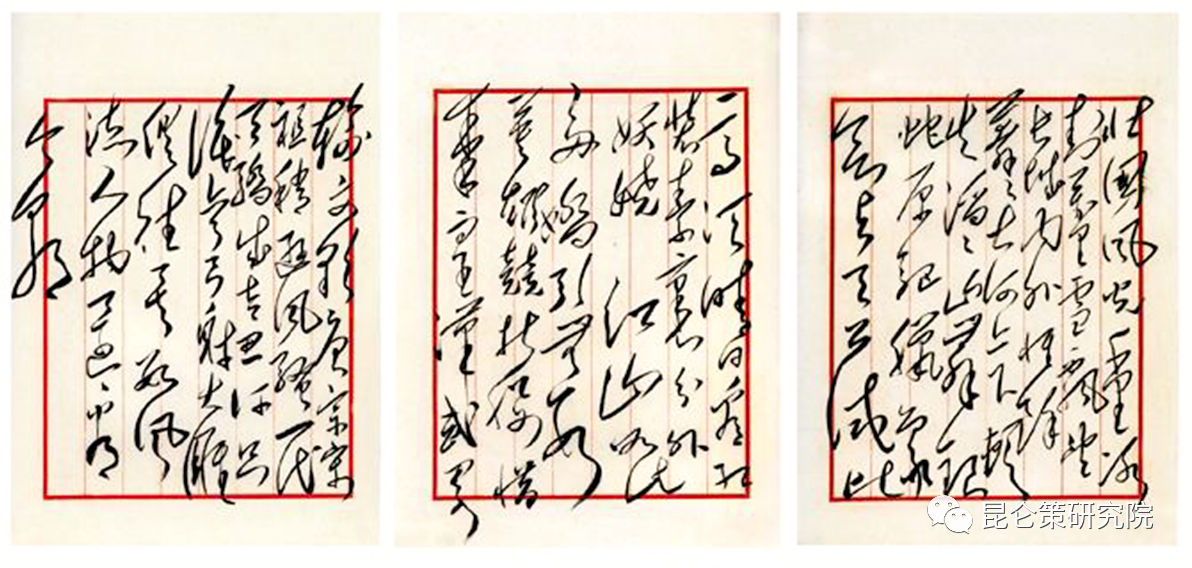 北国风光千里冰
封万里雪飘望
长城内外惟馀
莽莽大河上下顿
失滔滔山舞银
蛇原驰腊象
欲与天公试比
高须晴日看红
装素裹分外
妖娆江山如此
多娇引无数
英雄竞折腰惜
秦皇汉武略
输文彩唐宗宋
祖稍逊风骚一代
天骄成吉思汗只
识弯弓射大雕
俱往矣数风
流人物还看
今朝
昆仑策研究院